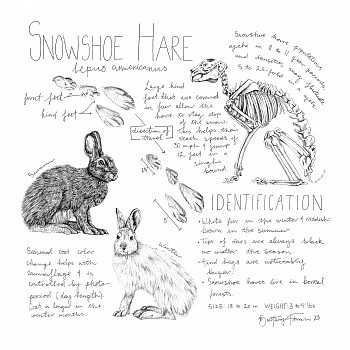 SNOWSHOE HARE
lepus americanus
front feet
hind feet
Large hind
feet that are covered
in fur allow the
hare to stay atop
of the snow.
this helps them
reach speeds of
30 mph & jump
12 feet in a
single
bound.
direction of
travel
Snowshoe hare populations
cycle in 8 to 11 year periods
and densities may
5 to 25-fold in a
cycle.
Summer
Winter
IDENTIFICATION
• White fur in the winter & reddish
brown in the summer.
• Tips of ears are always black
no matter the season.
• Hind legs are noticeably
larger.
• Snowshoe hares live in boreal
forests.
SIZE: 18 to 20 in WEIGHT: 3 to 4 lbs
Seasonal coat color
change helps with
camouflage & is
controlled by photo-
period (day length).
Coat is longer in the
winter months.
Brittany 23